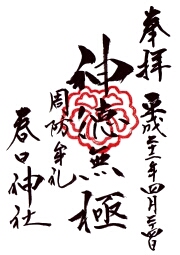 奉拝
平成二十二年四月三日
神徳無極
周防牟礼
春日神社